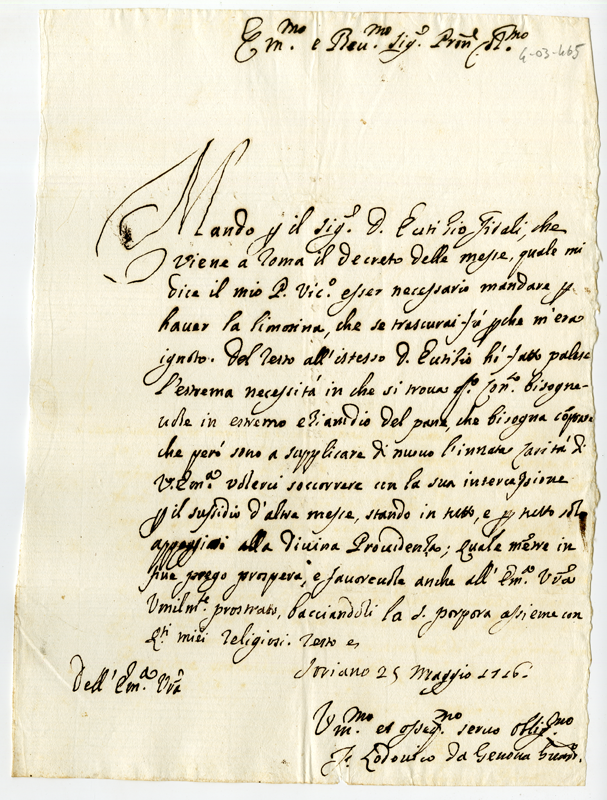 Em.mo e Reu.mo Sig.r Pron Col.mo
4-03-465
Mando p il Sig.r D. Eutitio che
viene a Roma il decreto delle messe, quale mi
dice il mio P. Vic.o esser necessario mandare p
hauer la limosina, che se trascurai fù pche m'era
ignoto. Del resto all'istesso D. Eutitio hò fatto palese
l'estrema necessità in che si troua q.to Con.to bisogne-
uole in estremo etiamdio del pane, che bisogna comprare
che però sono a supplicare di nuouo l'innata carità di
V. Em.a volerci soccorrere con la sua intercessione
p il sussidio d'altre messe, stando in tutto, e p tutto solo
appoggiati alla Diuina Prouidenza; quale mentre in
fine prego prospera, e fauoreuole anche all'Em.a Vra
Vmilm.te prostrato, bacciandoli la s. porpora assieme con
q.ti miei Religiosi. resto
Soriano 25 Maggio 1716.
Dell'Em.a Vra
Vm.mo et osseq.mo seruo oblig.mo
F. Lodouico da Genoua